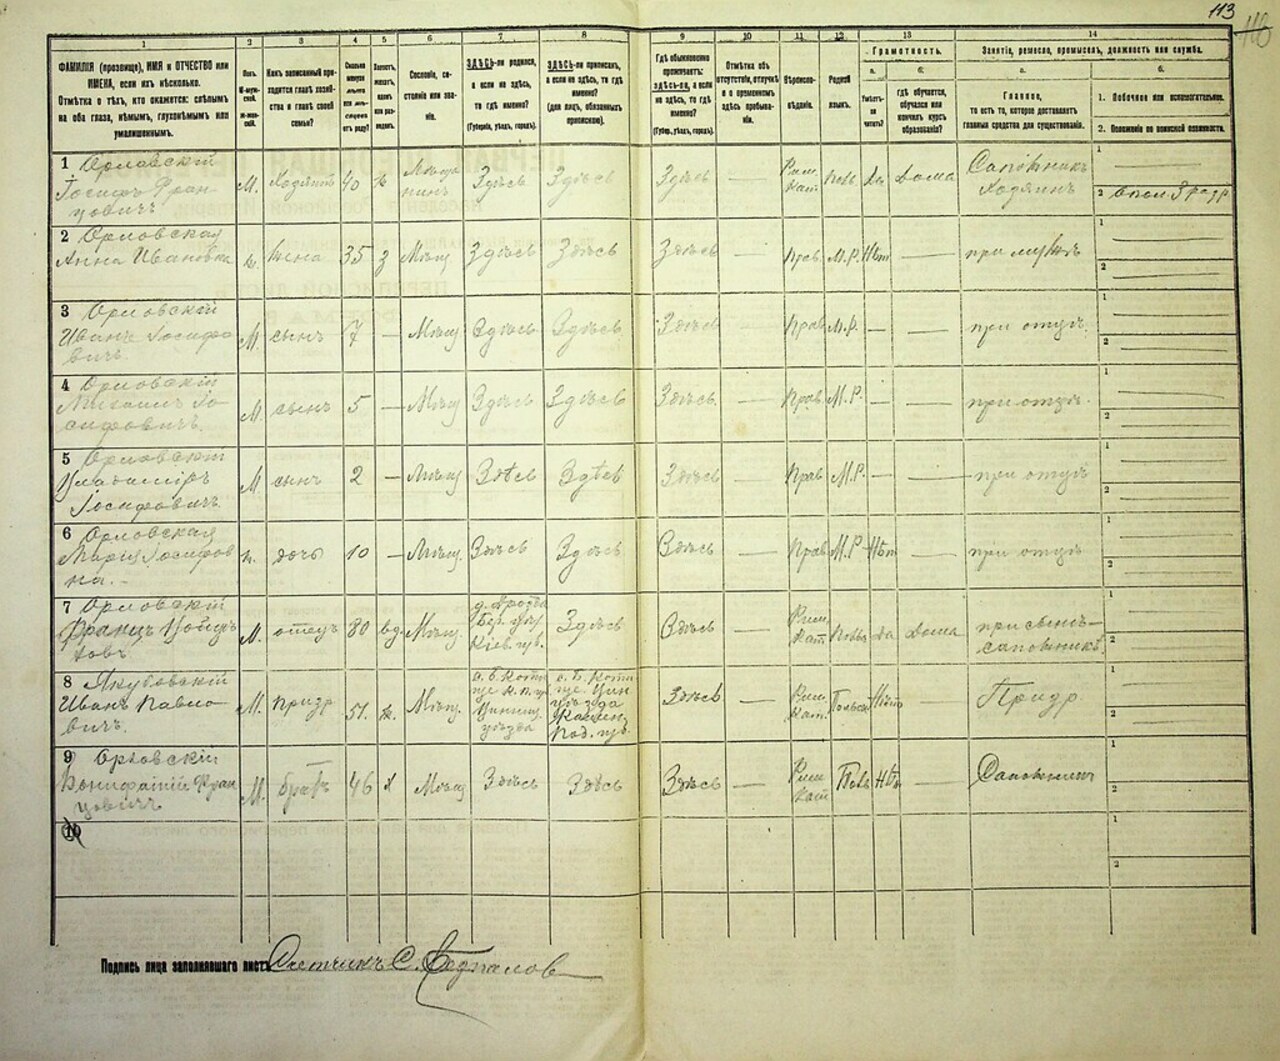 113
118
1 2 3 4 5 6 7 8 9 10 11 12 13 14
ФАМИЛІЯ (прозвище), ИМЯ и ОТЧЕСТВО или
ИМЕНА, если ихъ нѣсколько.
Отмѣтка о тѣхъ, кто окажется: слѣпымъ
на оба глаза, нѣмымъ, глухонѣмымъ или
умалишеннымъ.
Полъ.
М-мужской.
Ж-женскій.
Какъ записанный приходится главѣ хозяйства и главѣ своей семьи?
Сколько минуло лѣтъ или мѣсяцевъ отъ роду?
Холостъ, женатъ, вдовъ или разведенъ.
Сословіе, состояніе или званіе.
ЗДѢСЬ-ли родился,
а если не здѣсь,
то гдѣ именно?
(Губернія, уѣздъ, городъ).
ЗДѢСЬ-ли приписанъ,
а если не здѣсь, то гдѣ
именно?
(для лицъ, обязанныхъ
припискою).
Гдѣ обыкновенно
проживаетъ:
здѣсь-ли, а если
не здѣсь, то гдѣ
именно?
(Губер., уѣздъ, городъ).
Отмѣтка объ
отсутствіи, отлучкѣ
и о временномъ
здѣсь пребываніи.
Вѣроисповѣданіе.
Родной
языкъ.
Грамотность.
а. б.
Умѣетъ-ли читать?
гдѣ обучается,
обучался или
кончилъ курсъ
образованія?
Занятіе, ремесло, промыселъ, должность или служба.
а. б.
Главное,
то есть то, которое доставляетъ
главныя средства для существованія.
1. Побочное или вспомогательное.
2. Положеніе по воинской повинности.
1 Орловскій
Іосифъ Францовичъ М. Хозяинъ 40 ж Мѣщанинъ Здѣсь Здѣсь Здѣсь — Рим. Кат. Поль Да Дома Сапожникъ Хозяинъ 1 — 2
2 Орловская
Анна Ивановна ж. жена 35 з Мѣщ Здѣсь Здѣсь Здѣсь — Прав М.Р. Нѣт — при мужѣ 1 — 2 —
3 Орловскій
Иванъ Іосифовичъ. М. сынъ 7 — Мѣщ Здѣсь Здѣсь Здѣсь — Прав М.Р. — — при отцѣ. 1 — 2 —
4 Орловскій
Михаилъ Іосифовичъ. М сынъ 5 — Мѣщ Здѣсь Здѣсь Здѣсь. — Прав М.Р. — — при отцѣ. 1 — 2 —
5 Орловскій
Владиміръ
Іосифовичъ. М. сынъ 2 — Мѣщ Здѣсь Здѣсь Здѣсь — Прав М.Р. — — при отцѣ 1 — 2 —
6 Орловская
Марія Іосифовна. ж. дочь 10 — Мѣщ. Здѣсь Здѣсь Здѣсь — Прав М.Р Нѣт — при отцѣ 1 — 2 —
7 Орловскій
Францъ М. отецъ 80 вд. Мѣщ. Кіев. гу. Здѣсь Здѣсь — Рим. Кат. да Дома при сынѣ—
сапожникѣ 1 — 2 —
8 Якубовскій
Иванъ Павловичъ. М. придр 51. ж. Мѣщ. уѣзда уѣзда Под. гу. Здѣсь — Рим. Кат. Польск Нѣтъ — Придр. 1 — 2 —
9 Орловскій
Бонифатій Францовичъ М. братъ 46 х Мѣщ Здѣсь Здѣсь Здѣсь — Рим. Кат Поль Нѣт — Сапожникъ 1 2
10 1 2
Подпись лица заполнявшаго листъ Счетчикъ С.